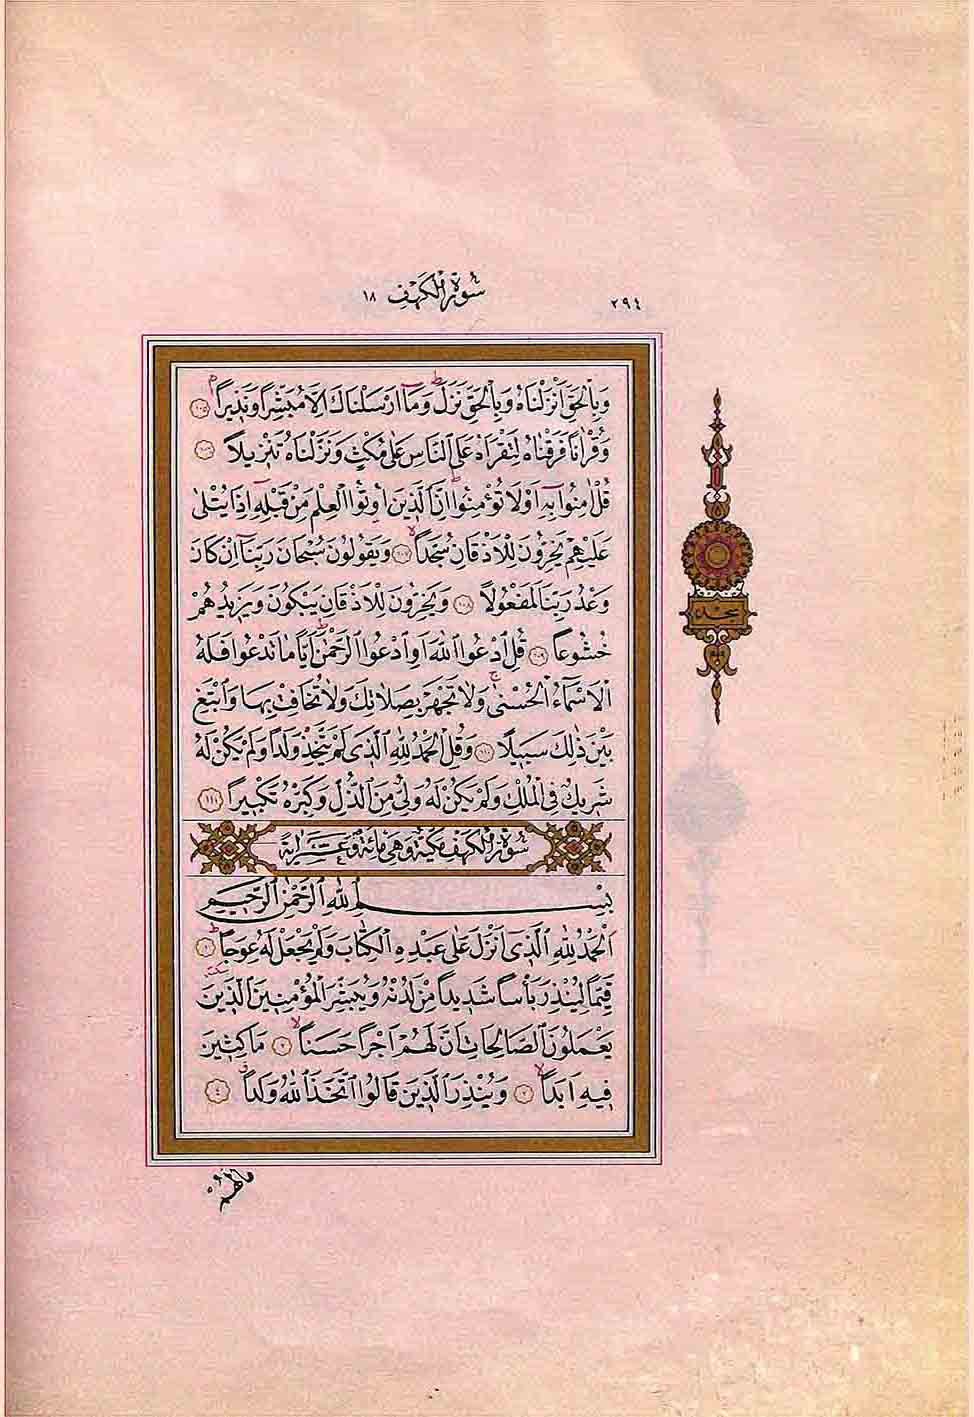 ٢٩٤
سُورَةُ الْكَهْفِ ١٨
وَبِالْحَقِّ اَنْزَلْنَاهُ وَبِالْحَقِّ نَزَلَ وَمَٓا اَرْسَلْنَاكَ اِلَّا مُبَشِّرًا وَنَذٖيرًا ﴿١٠٥﴾
وَقُرْاٰنًا فَرَقْنَاهُ لِتَقْرَاَهُ عَلَى النَّاسِ عَلٰى مُكْثٍ وَنَزَّلْنَاهُ تَنْزٖيلًا ﴿١٠٦﴾
قُلْ اٰمِنُوا بِهٖٓ اَوْ لَا تُؤْمِنُوا اِنَّ الَّذٖينَ اُو۫تُوا الْعِلْمَ مِنْ قَبْلِهٖٓ اِذَا يُتْلٰى
عَلَيْهِمْ يَخِرُّونَ لِلْاَذْقَانِ سُجَّدًا ﴿١٠٧﴾ وَيَقُولُونَ سُبْحَانَ رَبِّنَٓا اِنْ كَانَ
وَعْدُ رَبِّنَا لَمَفْعُولًا ﴿١٠٨﴾ وَيَخِرُّونَ لِلْاَذْقَانِ يَبْكُونَ وَيَزٖيدُهُمْ
خُشُوعًا ﴿١٠٩﴾ قُلِ ادْعُوا اللّٰهَ اَوِ ادْعُوا الرَّحْمٰنَ اَيًّا مَا تَدْعُوا فَلَهُ
الْاَسْمَٓاءُ الْحُسْنٰى وَلَا تَجْهَرْ بِصَلَاتِكَ وَلَا تُخَافِتْ بِهَا وَابْتَغِ
بَيْنَ ذٰلِكَ سَبٖيلًا ﴿١١٠﴾ وَقُلِ الْحَمْدُ لِلّٰهِ الَّذٖى لَمْ يَتَّخِذْ وَلَدًا وَلَمْ يَكُنْ لَهُ
شَرٖيكٌ فِى الْمُلْكِ وَلَمْ يَكُنْ لَهُ وَلِىٌّ مِنَ الذُّلِّ وَكَبِّرْهُ تَكْبٖيرًا ﴿١١١﴾
سُورَةُ الْكَهْفِ مَكِّيَّةٌ وَهِىَ مِائَةٌ وَعَشَرُ اٰيَةً
بِسْمِ اللّٰهِ الرَّحْمٰنِ الرَّحٖيمِ
اَلْحَمْدُ لِلّٰهِ الَّذٖٓى اَنْزَلَ عَلٰى عَبْدِهِ الْكِتَابَ وَلَمْ يَجْعَلْ لَهُ عِوَجًا ﴿١﴾
قَيِّمًا لِيُنْذِرَ بَاْسًا شَدٖيدًا مِنْ لَدُنْهُ وَيُبَشِّرَ الْمُؤْمِنٖينَ الَّذٖينَ
يَعْمَلُونَ الصَّالِحَاتِ اَنَّ لَهُمْ اَجْرًا حَسَنًا ﴿٢﴾ مَاكِثٖينَ
فٖيهِ اَبَدًا ﴿٣﴾ وَيُنْذِرَ الَّذٖينَ قَالُوا اتَّخَذَ اللّٰهُ وَلَدًا ﴿٤﴾
مَا لَهُمْ
سجده